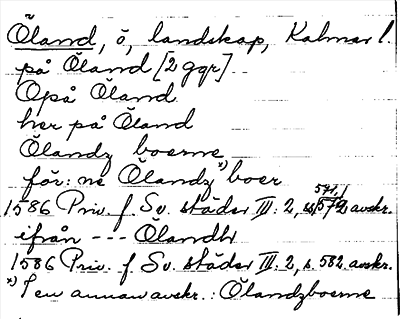 Öland, ö, landskap, Kalmar l.
på Öland [2 ggr]
Opå Öland
her på Öland
Ölandz boerne
för: ne Ölandz *) boer
1586 Priv. f. Sv. städer III: 2, s. 571, 572 avskr.
ifrån --- Ölandh
1586 Priv. f. Sv. städer III: 2, s. 582 avskr.
*) I en annan avskr.: Ölandzboerne